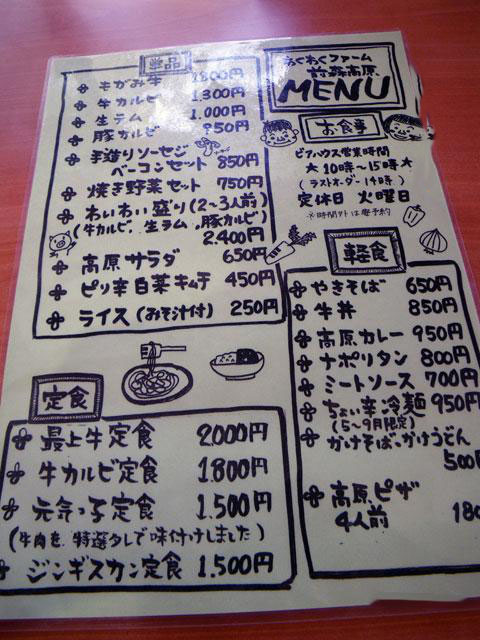 わくわくファーム
前森高原
MENU
お食事
ビアハウス営業時間
★10時〜15時★
(ラストオーダー14時)
定休日 火曜日
※時間外は要予約
単品
もがみ牛 1.800円
牛カルビ 1.300円
生ラム 1.000円
豚カルビ 850円
手造りソーセージ
ベーコンセット 850円
焼き野菜セット 750円
わいわい盛り(2〜3人前)
(牛カルビ、生ラム、豚カルビ)
2.400円
高原サラダ 650円
ピリ辛白菜キムチ 450円
ライス(おみそ汁付) 250円
定食
最上牛定食 2000円
牛カルビ定食 1.800円
元気っ子定食 1.500円
(牛肉を特選タレで味付けしました)
ジンギスカン定食 1.500円
軽食
やきそば 650円
牛丼 850円
高原カレー 950円
ナポリタン 800円
ミートソース 700円
ちょい辛冷麺 950円
(5〜9月限定)
かけそば・かけうどん
500円
高原ピザ
4人前 180